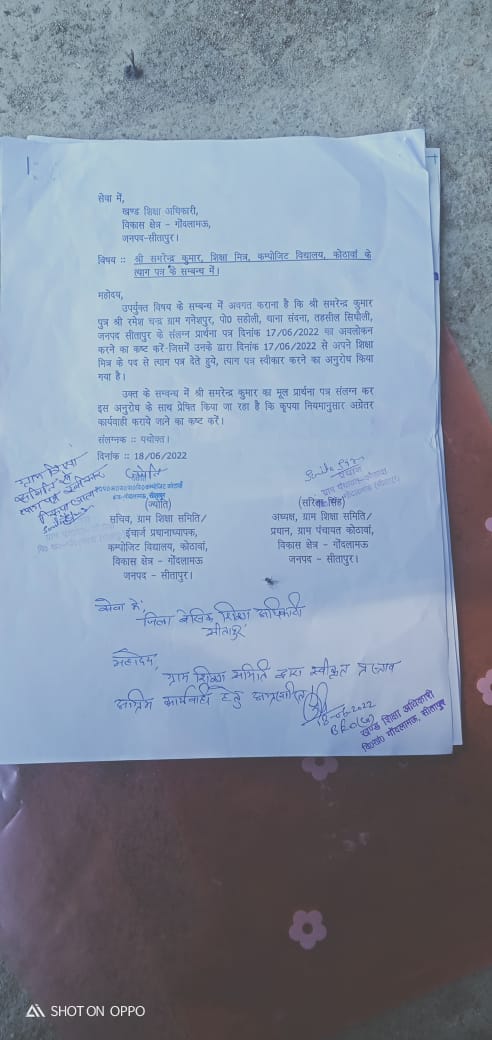 सेवा में,
खण्ड शिक्षा अधिकारी,
विकास क्षेत्र - गोंदलामऊ,
जनपद-सीतापुर।
विषय :: श्री समरेन्द्र कुमार, शिक्षा मित्र, कम्पोजिट विद्यालय, कोठावां के
त्याग पत्र के सम्बन्ध में।
महोदय,
उपर्युक्त विषय के सम्बन्ध में अवगत कराना है कि श्री समरेन्द्र कुमार
पुत्र श्री रमेश चन्द्र ग्राम गनेशपुर, पो0 सहोली, थाना संदना, तहसील सिधौली,
जनपद सीतापुर के संलग्न प्रार्थना पत्र दिनांक 17/06/2022 का अवलोकन
करने का कष्ट करें जिसमें उनके द्वारा दिनांक 17/06/2022 से अपने शिक्षा
मित्र के पद से त्याग पत्र देते हुये, त्याग पत्र स्वीकार करने का अनुरोध किया
गया है।
उक्त के सम्बन्ध में श्री समरेन्द्र कुमार का मूल प्रार्थना पत्र संलग्न कर
इस अनुरोध के साथ प्रेषित किया जा रहा है कि कृपया नियमानुसार अग्रेतर
कार्यवाही कराये जाने का कष्ट करें।
संलग्नक :: यथोक्त।
दिनांक :: 18/06/2022
ग्राम शिक्षा
समिति
(ज्योति)
सचिव, ग्राम शिक्षा समिति/
इंचार्ज प्रधानाध्यापक,
कम्पोजिट विद्यालय, कोठावां,
विकास क्षेत्र - गोंदलामऊ
जनपद - सीतापुर।
प्रधान
ग्राम पंचायत-कोठावां
(सरिता सिंह)
अध्यक्ष, ग्राम शिक्षा समिति/
प्रधान, ग्राम पंचायत कोठावां,
विकास क्षेत्र - गोंदलामऊ
जनपद - सीतापुर।
सेवा में,
जिला बेसिक शिक्षा अधिकारी
सीतापुर
महोदय,
ग्राम शिक्षा समिति द्वारा स्वीकृत
अग्रिम कार्यवाही हेतु अग्रसारित
18-06-2022
BEO(G)
खण्ड शिक्षा अधिकारी
वि0क्षे0 गोंदलामऊ, सीतापुर
SHOT ON OPPO